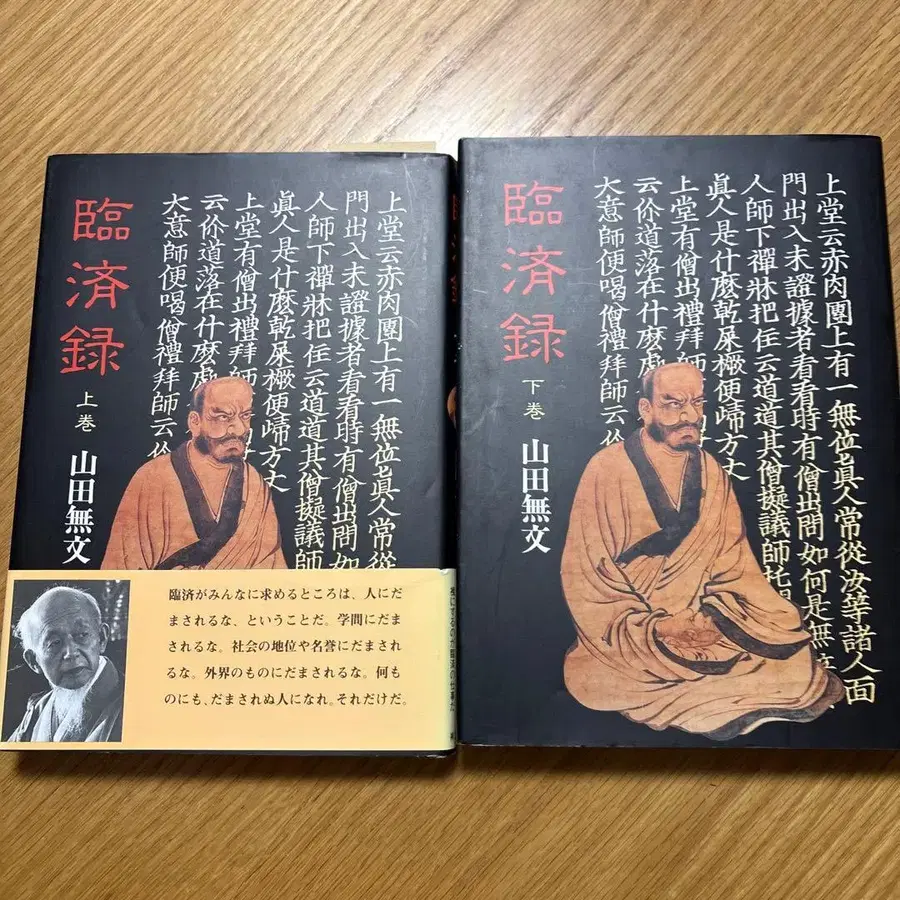 臨済録
上巻
山田無文
上堂云赤肉團上有一無位眞人常從
門出入未證據者看看時有僧出問如
人師下禪牀把住云道道其僧擬議師
眞人是什麼乾屎橛便歸方丈
上堂有僧出禮拜師
云伱道落在什麼處
大意師便喝僧禮拜師云伱
臨済がみんなに求めるところは、人にだ
まされるな、ということだ。学問にだま
されるな。社会の地位や名誉にだまされ
るな。外界のものにだまされるな。何も
のにも、だまされぬ人になれ。それだけだ。
にするのが臨済の仕事だ。
臨済録
臨済録
下巻
山田無文
上堂云赤肉團上有一無位眞人常從汝等諸人面
門出入未證據者看看時有僧出問如何是無
人師下禪牀把住云道道其僧擬議師托
眞人是什麼乾屎橛便歸方丈
上堂有僧出禮拜師
云伱道落在什麼
大意師便喝僧禮拜師云伱